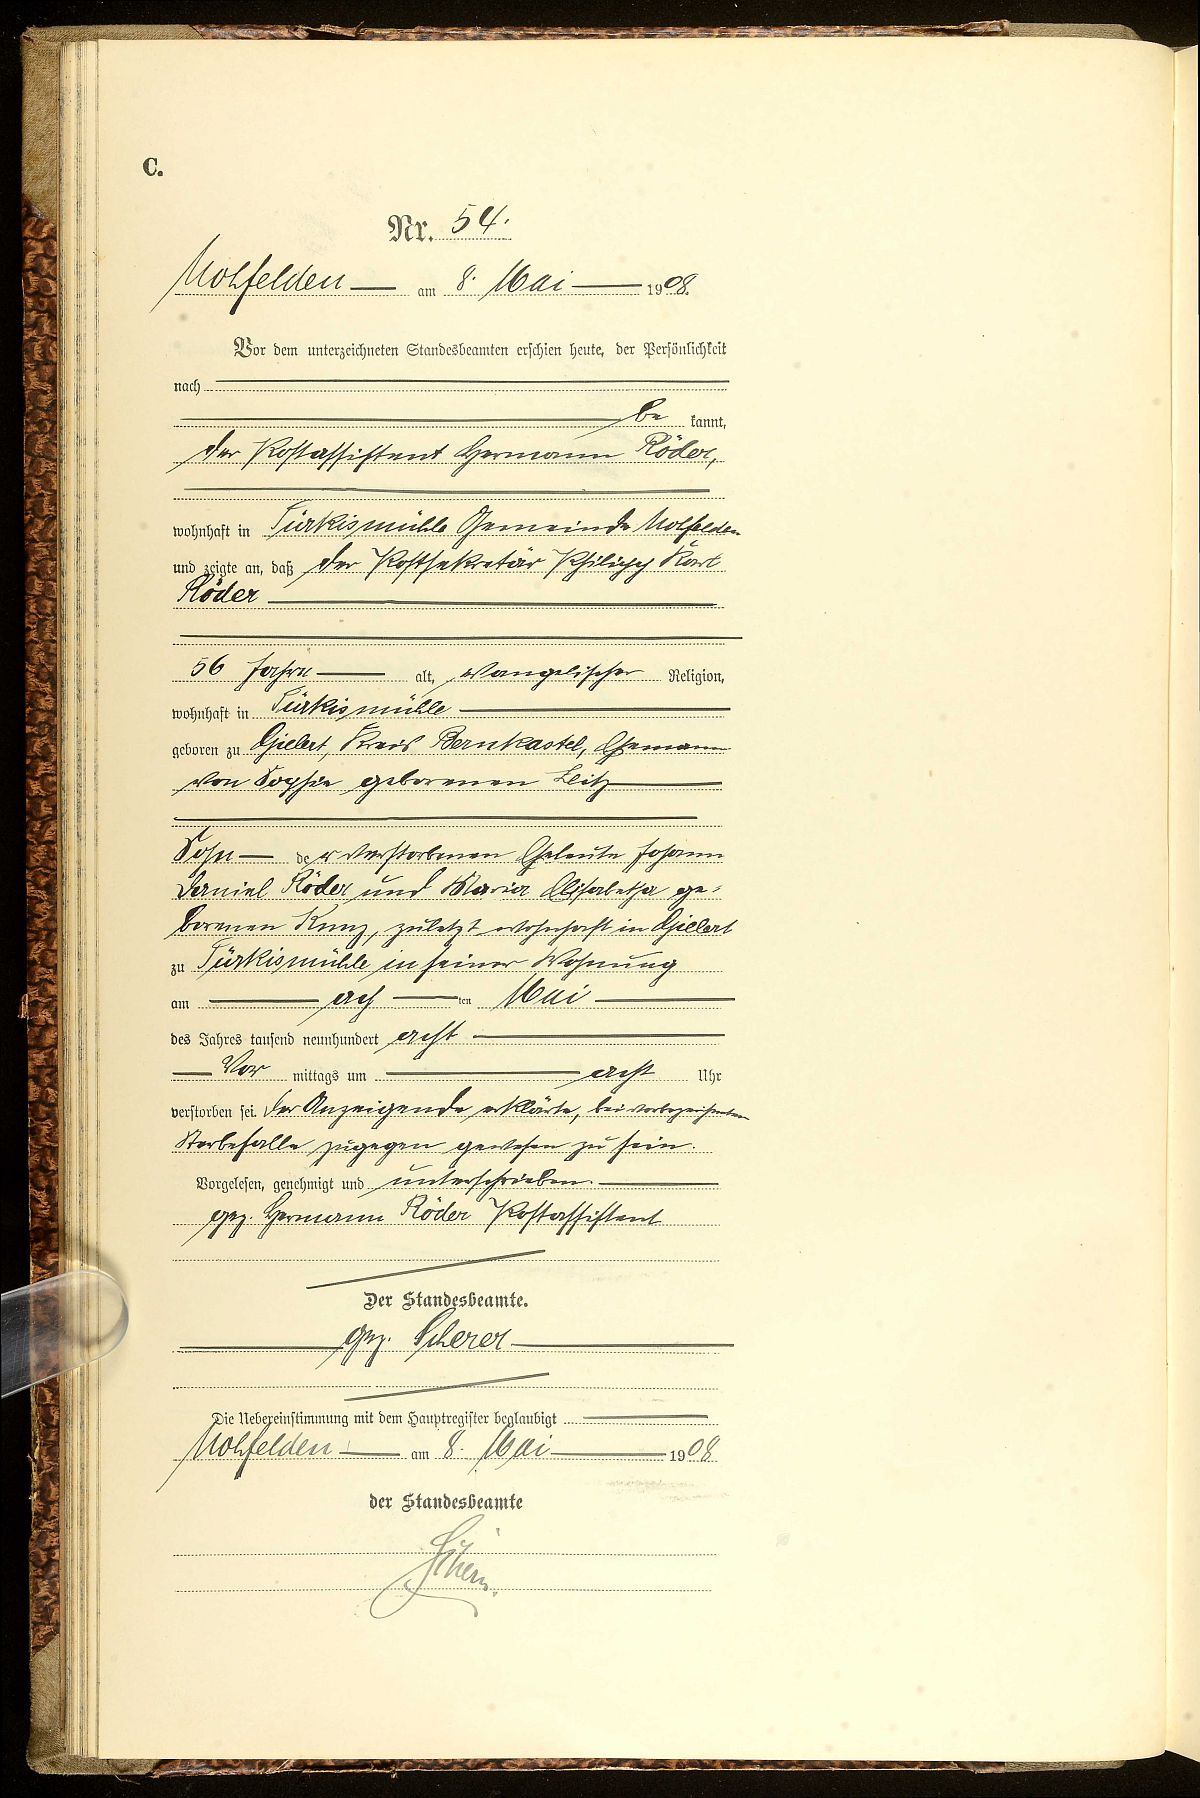 C.
Nr. 54.
Nohfelden am 8. Mai 1908.
Vor dem unterzeichneten Standesbeamten erschien heute, der Persönlichkeit
nach
be kannt,
der Postassistent Hermann Röder,
wohnhaft in Türkismühle Gemeinde Nohfelden
und zeigte an, daß der Postsekretär Philipp Karl
Röder
56 Jahre alt, evangelischer Religion,
wohnhaft in Türkismühle
geboren zu Gielert, Kreis Bernkastel, Ehemann
von Sophie geborenen Leitz
Sohn der verstorbenen Eheleute Johann
Daniel Röder und Maria Elisabetha ge-
borenen Kunz, zuletzt wohnhaft in Gielert
zu Türkismühle in seiner Wohnung
am ach ten Mai
des Jahres tausend neunhundert acht
Vor mittags um acht Uhr
verstorben sei. Der Anzeigende erklärte, bei vorbezeichneten
Sterbefalle zugegen gewesen zu sein.
Vorgelesen, genehmigt und unterschrieben.
gez. Hermann Röder Postassistent
Der Standesbeamte.
gez. Scherer
Die Uebereinstimmung mit dem Hauptregister beglaubigt
Nohfelden am 8. Mai 1908
der Standesbeamte